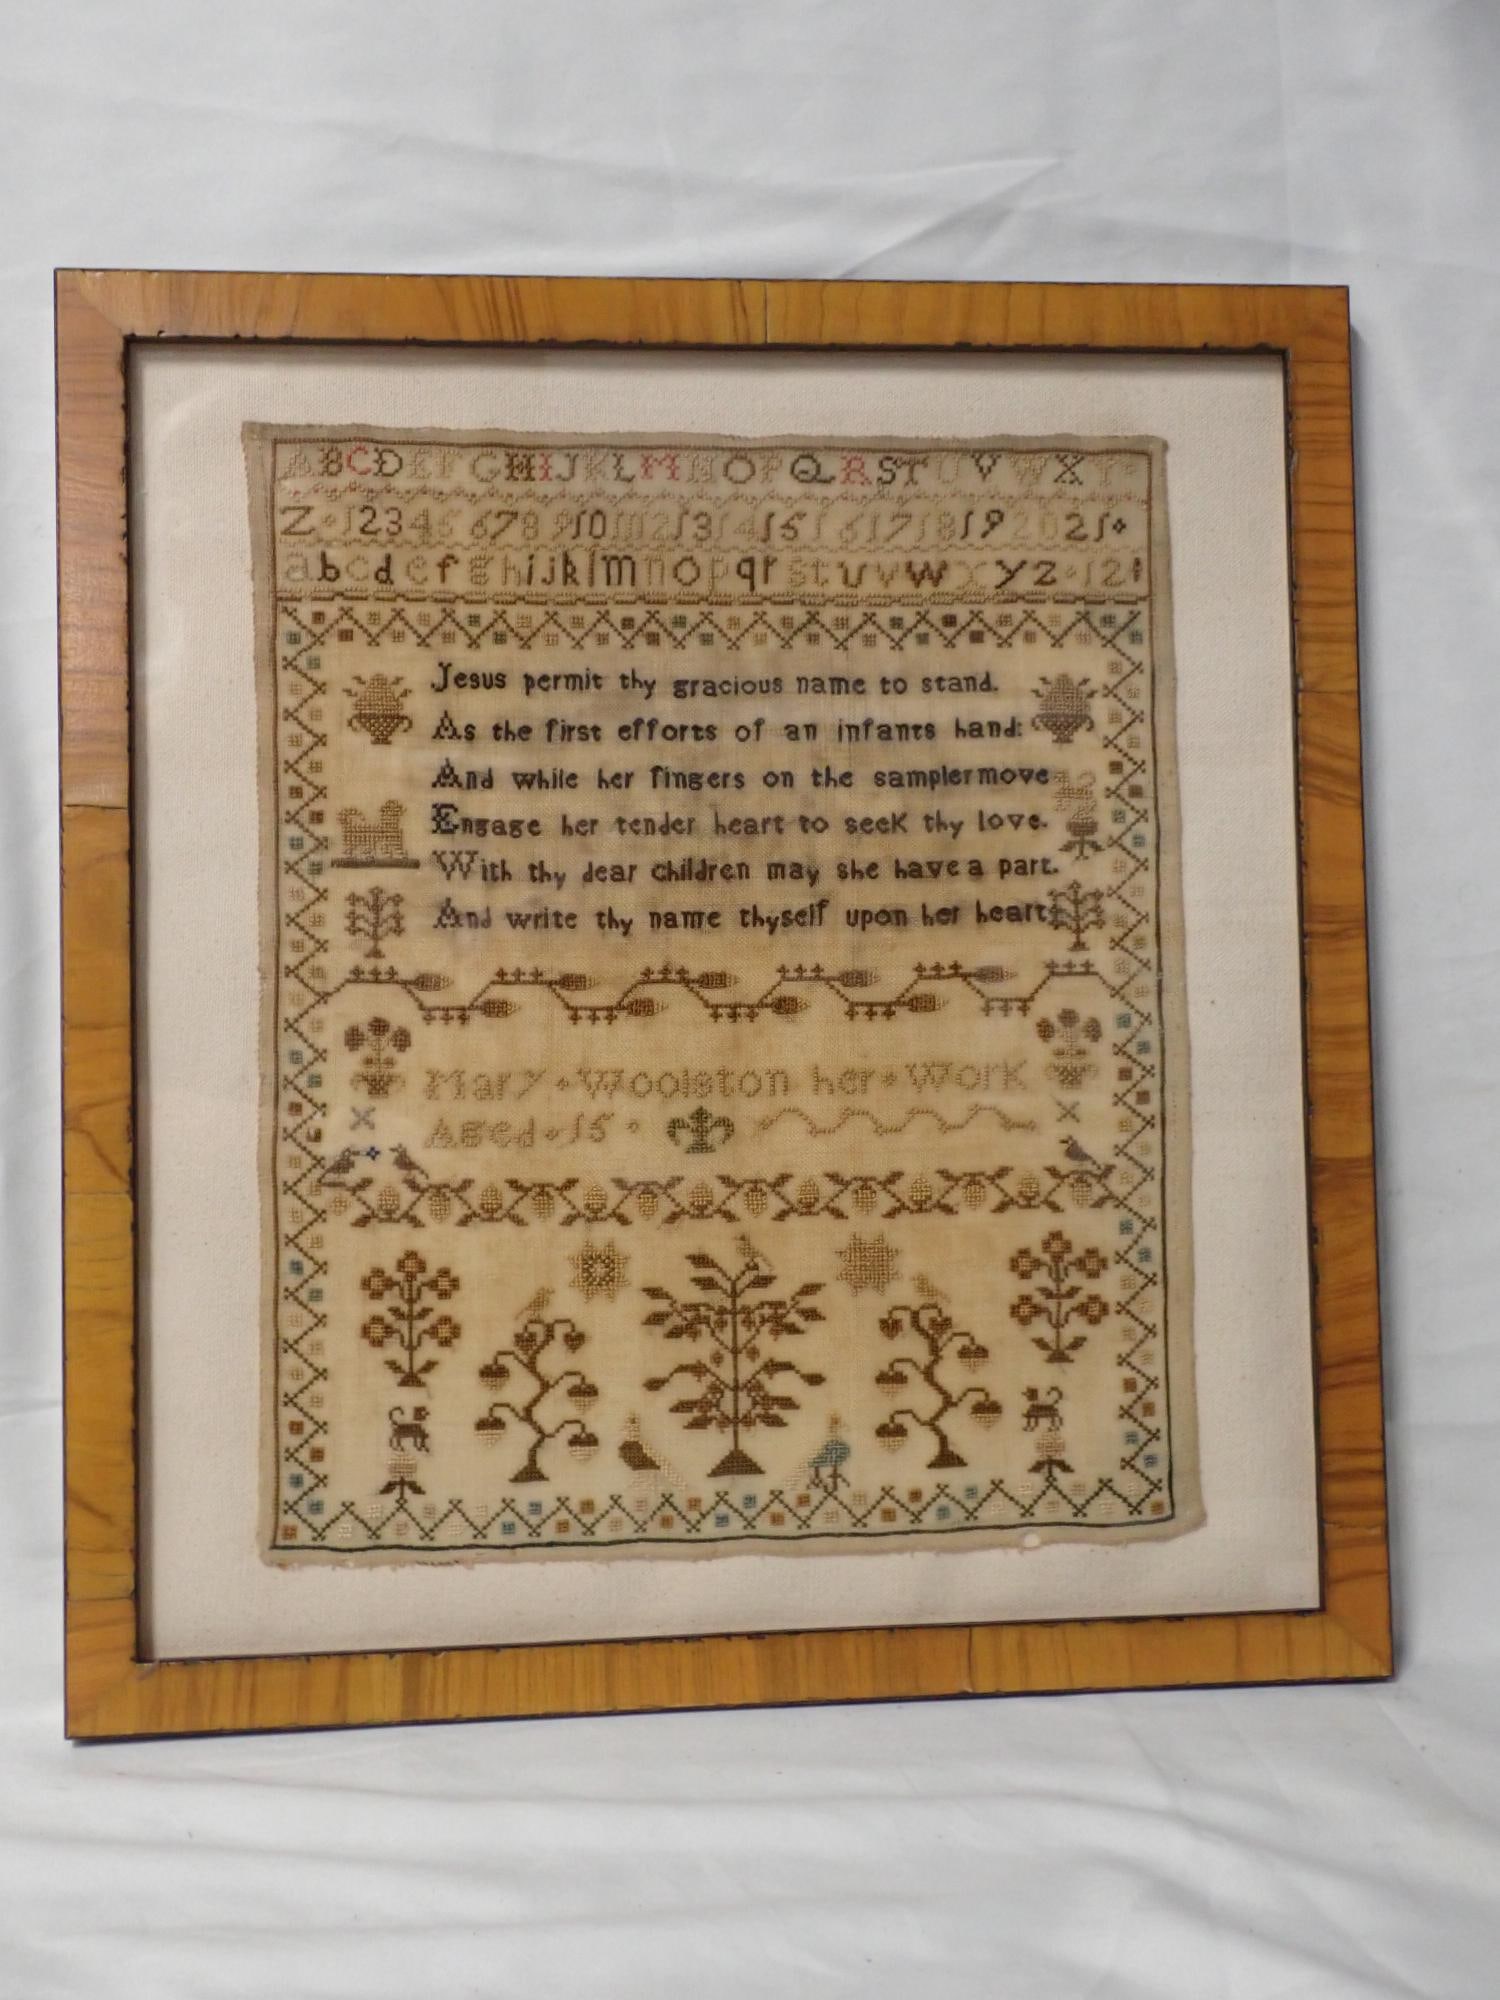 ABCDEFGHIJKLMNOPQRSTUVWXY
Z 123456789101112131415161718192021
abcdefghijklmnopqrstuvwxyz 121
Jesus permit thy gracious name to stand.
As the first efforts of an infants hand:
And while her fingers on the sampler move
Engage her tender heart to seek thy love.
With thy dear children may she have a part.
And write thy name thyself upon her heart:
Mary Woolston her Work
Aged 15